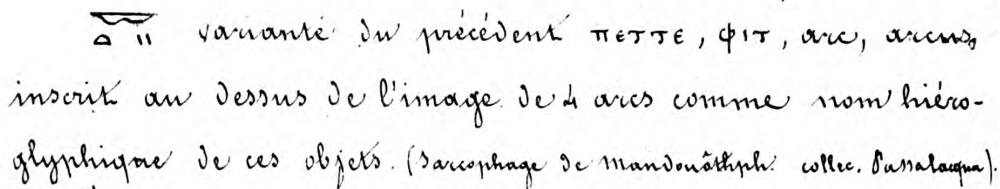 variante du précédent ⲡⲉⲧⲧⲉ, ⲫⲓⲧ, arc, arcus,
inscrit au dessus de l'image de 4 arcs comme nom hiéro-
glyphique de ces objets. (Sarcophage de Mandouâthph. collec. Passalacqua).